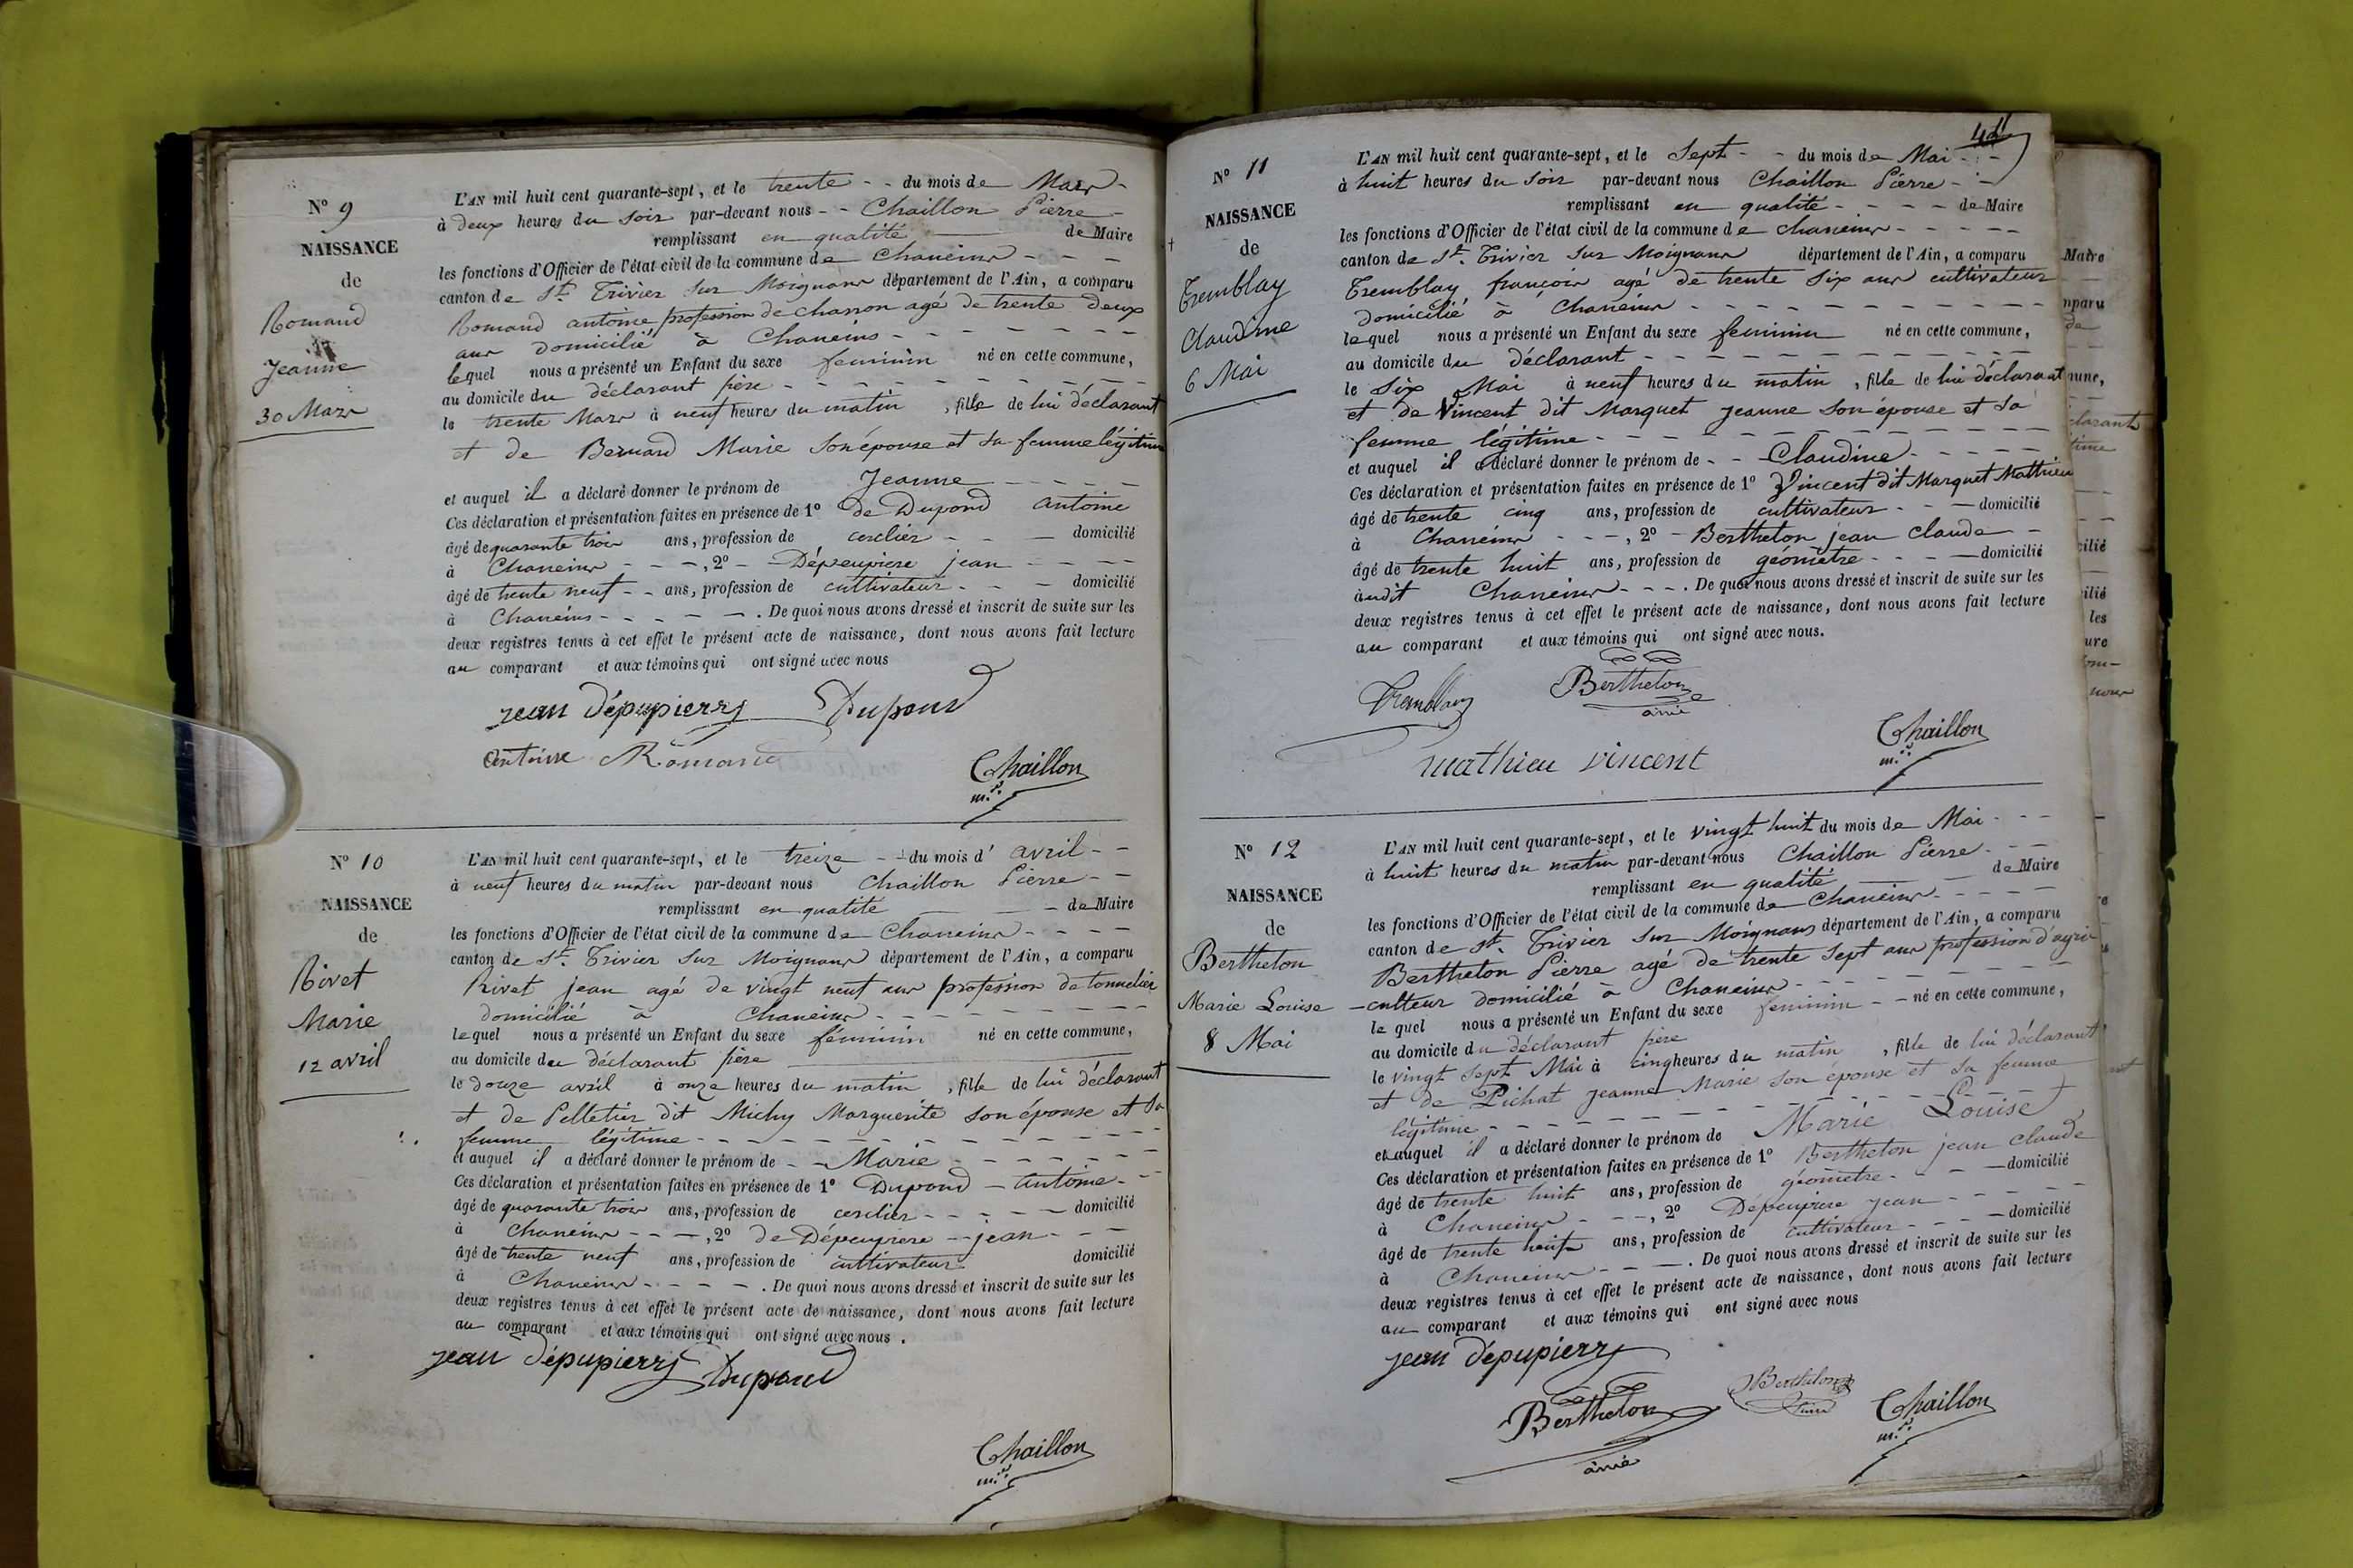 N° 9
NAISSANCE
de
Romand
Jeanne
30 Mars
L'AN mil huit cent quarante-sept, et le trente - - du mois de Mars -
à deux heures du soir par-devant nous - - Chaillon Pierre -
remplissant en qualité de Maire
les fonctions d'Officier de l'état civil de la commune de Chaneins - - -
canton de St. Trivier sur Moignans département de l'Ain, a comparu
Romand antoine profession de charron agé de trente deux
ans domicilié à Chaneins - - - - - - -
lequel nous a présenté un Enfant du sexe feminin né en cette commune,
au domicile du déclarant père - - - - - - - -
le trente Mars à neuf heures du matin, fille de lui déclarant
et de Bernard Marie son épouse et sa femme légitime
et auquel il a déclaré donner le prénom de Jeanne - - - - -
Ces déclaration et présentation faites en présence de 1° de Dupond antoine
âgé de quarante trois ans, profession de cerclier - - - domicilié
à Chaneins - - -, 2° - Dépeupiere jean - - - -
âgé de trente neuf - - ans, profession de cultivateur - - - domicilié
à Chaneins - - - - - . De quoi nous avons dressé et inscrit de suite sur les
deux registres tenus à cet effet le présent acte de naissance, dont nous avons fait lecture
au comparant et aux témoins qui ont signé avec nous
jean dépupierry Dupond
antoine Romand
Chaillon
m.re
N° 10
NAISSANCE
de
Rivet
Marie
12 avril
L'AN mil huit cent quarante-sept, et le treize - - du mois d' avril - -
à neuf heures du matin par-devant nous Chaillon Pierre - -
remplissant en qualité - de Maire
les fonctions d'Officier de l'état civil de la commune de Chaneins - - - -
canton de St. Trivier sur Moignans département de l'Ain, a comparu
Rivet jean agé de vingt neuf ans profession de tonnelier
domicilié à Chaneins - - - - - - - -
lequel nous a présenté un Enfant du sexe féminin né en cette commune,
au domicile du déclarant père
le douze avril à onze heures du matin, fille de lui déclarant
et de Pelletier dit Michy Marguerite son épouse et sa
femme légitime - - - - - - - - - - - -
et auquel il a déclaré donner le prénom de - - Marie - - - - - -
Ces déclaration et présentation faites en présence de 1° Dupond - antoine - -
âgé de quarante trois ans, profession de cerclier - - - - - domicilié
à Chaneins - - -, 2° de Dépeupiere - jean - -
âgé de trente neuf ans, profession de cultivateur domicilié
à Chaneins - - - - . De quoi nous avons dressé et inscrit de suite sur les
deux registres tenus à cet effet le présent acte de naissance, dont nous avons fait lecture
au comparant et aux témoins qui ont signé avec nous .
jean dépupierry Dupond
Chaillon
m.re
N° 11
NAISSANCE
de
Tremblay
Claudine
6 Mai
L'AN mil huit cent quarante-sept, et le Sept - - du mois de Mai - -
à huit heures du soir par-devant nous Chaillon Pierre - -
remplissant en qualité - - - - de Maire
les fonctions d'Officier de l'état civil de la commune de chaneins - - - - -
canton de St. Trivier sur Moignans département de l'Ain, a comparu
Tremblay françois agé de trente six ans cultivateur
domicilié à Chaneins - - - - - - - - - -
lequel nous a présenté un Enfant du sexe feminin né en cette commune,
au domicile du déclarant - - - - - - - - - - -
le six Mai à neuf heures du matin, fille de lui déclarant
et de Vincent dit Marquet jeanne son épouse et sa
femme légitime - - - - - - - - - - - -
et auquel il a déclaré donner le prénom de - - Claudine - - - - -
Ces déclaration et présentation faites en présence de 1° Vincent dit Marquet Mathieu
âgé de trente cinq ans, profession de cultivateur - - - domicilié
à Chaneins - - -, 2° - Berthelon jean claude -
âgé de trente huit ans, profession de géomètre - - - domicilié
audit Chaneins - - - . De quoi nous avons dressé et inscrit de suite sur les
deux registres tenus à cet effet le présent acte de naissance, dont nous avons fait lecture
au comparant et aux témoins qui ont signé avec nous.
Tremblay Berthelon
ainé
mathieu vincent
Chaillon
m.re
N° 12
NAISSANCE
de
Berthelon
Marie Louise
8 Mai
L'AN mil huit cent quarante-sept, et le vingt huit du mois de Mai - - -
à huit heures du matin par-devant nous Chaillon Pierre - - -
remplissant en qualité de Maire
les fonctions d'Officier de l'état civil de la commune de Chaneins - - - -
canton de St. Trivier sur Moignans département de l'Ain, a comparu
Berthelon Pierre agé de trente sept ans profession d'agri
-culteur domicilié à Chaneins - - - - - - -
lequel nous a présenté un Enfant du sexe feminin - - né en cette commune,
au domicile du déclarant père
le vingt sept Mai à cinq heures du matin, fille de lui déclarant
et de Pichat jeanne Marie son épouse et sa femme
légitime - - - - - - - - - -
et auquel il a déclaré donner le prénom de Marie Louise
Ces déclaration et présentation faites en présence de 1° Berthelon jean claude
âgé de trente huit ans, profession de géomètre - - - domicilié
à Chaneins - - -, 2° Dépeupiere jean - - - - -
âgé de trente ans, profession de cultivateur - - - domicilié
à Chaneins - - - . De quoi nous avons dressé et inscrit de suite sur les
deux registres tenus à cet effet le présent acte de naissance, dont nous avons fait lecture
au comparant et aux témoins qui ont signé avec nous
jean dépupierry
Berthelon Berthelon Chaillon
ainé m.re